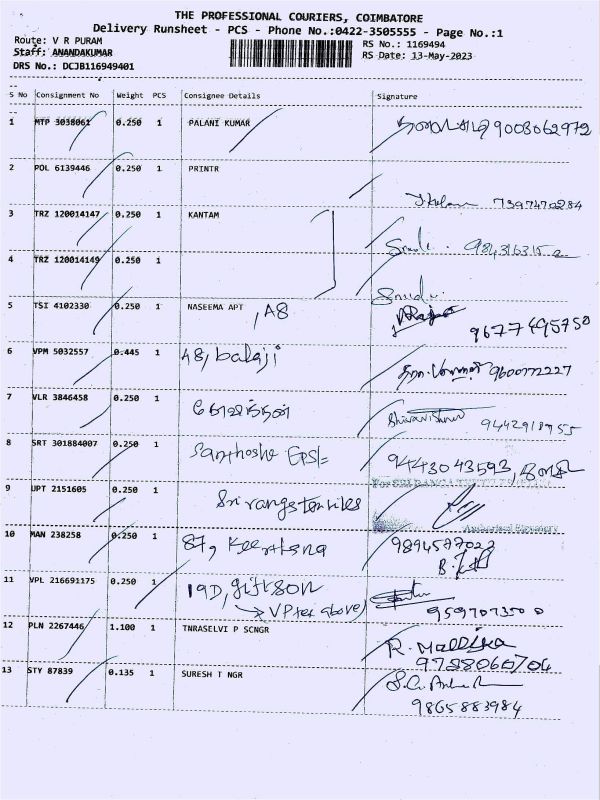 THE PROFESSIONAL COURIERS, COIMBATORE
Delivery Runsheet - PCS - Phone No.:0422-3505555 - Page No.:1
Route: V R PURAM
RS No.: 1169494
Staff: ANANDAKUMAR
RS Date: 13-May-2023
DRS No.: DCJB116949401
S No Consignment No Weight PCS Consignee Details Signature
1 MTP 3038061 0.250 1 PALANI KUMAR 9003062972
2 POL 6139446 0.250 1 PRINTR
7397470284
3 TRZ 120014147 0.250 1 KANTAM
4 TRZ 120014149 0.250 1
5 TSI 4102330 0.250 1 NASEEMA APT , A8
9677495750
6 VPM 5032557 0.445 1 48, balaji 9600772227
7 VLR 3846458 0.250 1
9442918955
8 SRT 301884007 0.250 1 Santhosh 9443043593,
9 JPT 2151605 0.250 1 Sri rangs textiles
Authorised Signatory
10 MAN 238258 0.250 1 87, Keerthana 9894577022
11 VPL 216691175 0.250 1 19D,
VP above) 9597073500
12 PLN 2267446 1.100 1 TNRASELVI P SCNGR
R. Mallika
9788060704
13 STY 87839 0.135 1 SURESH T NGR
9865883984